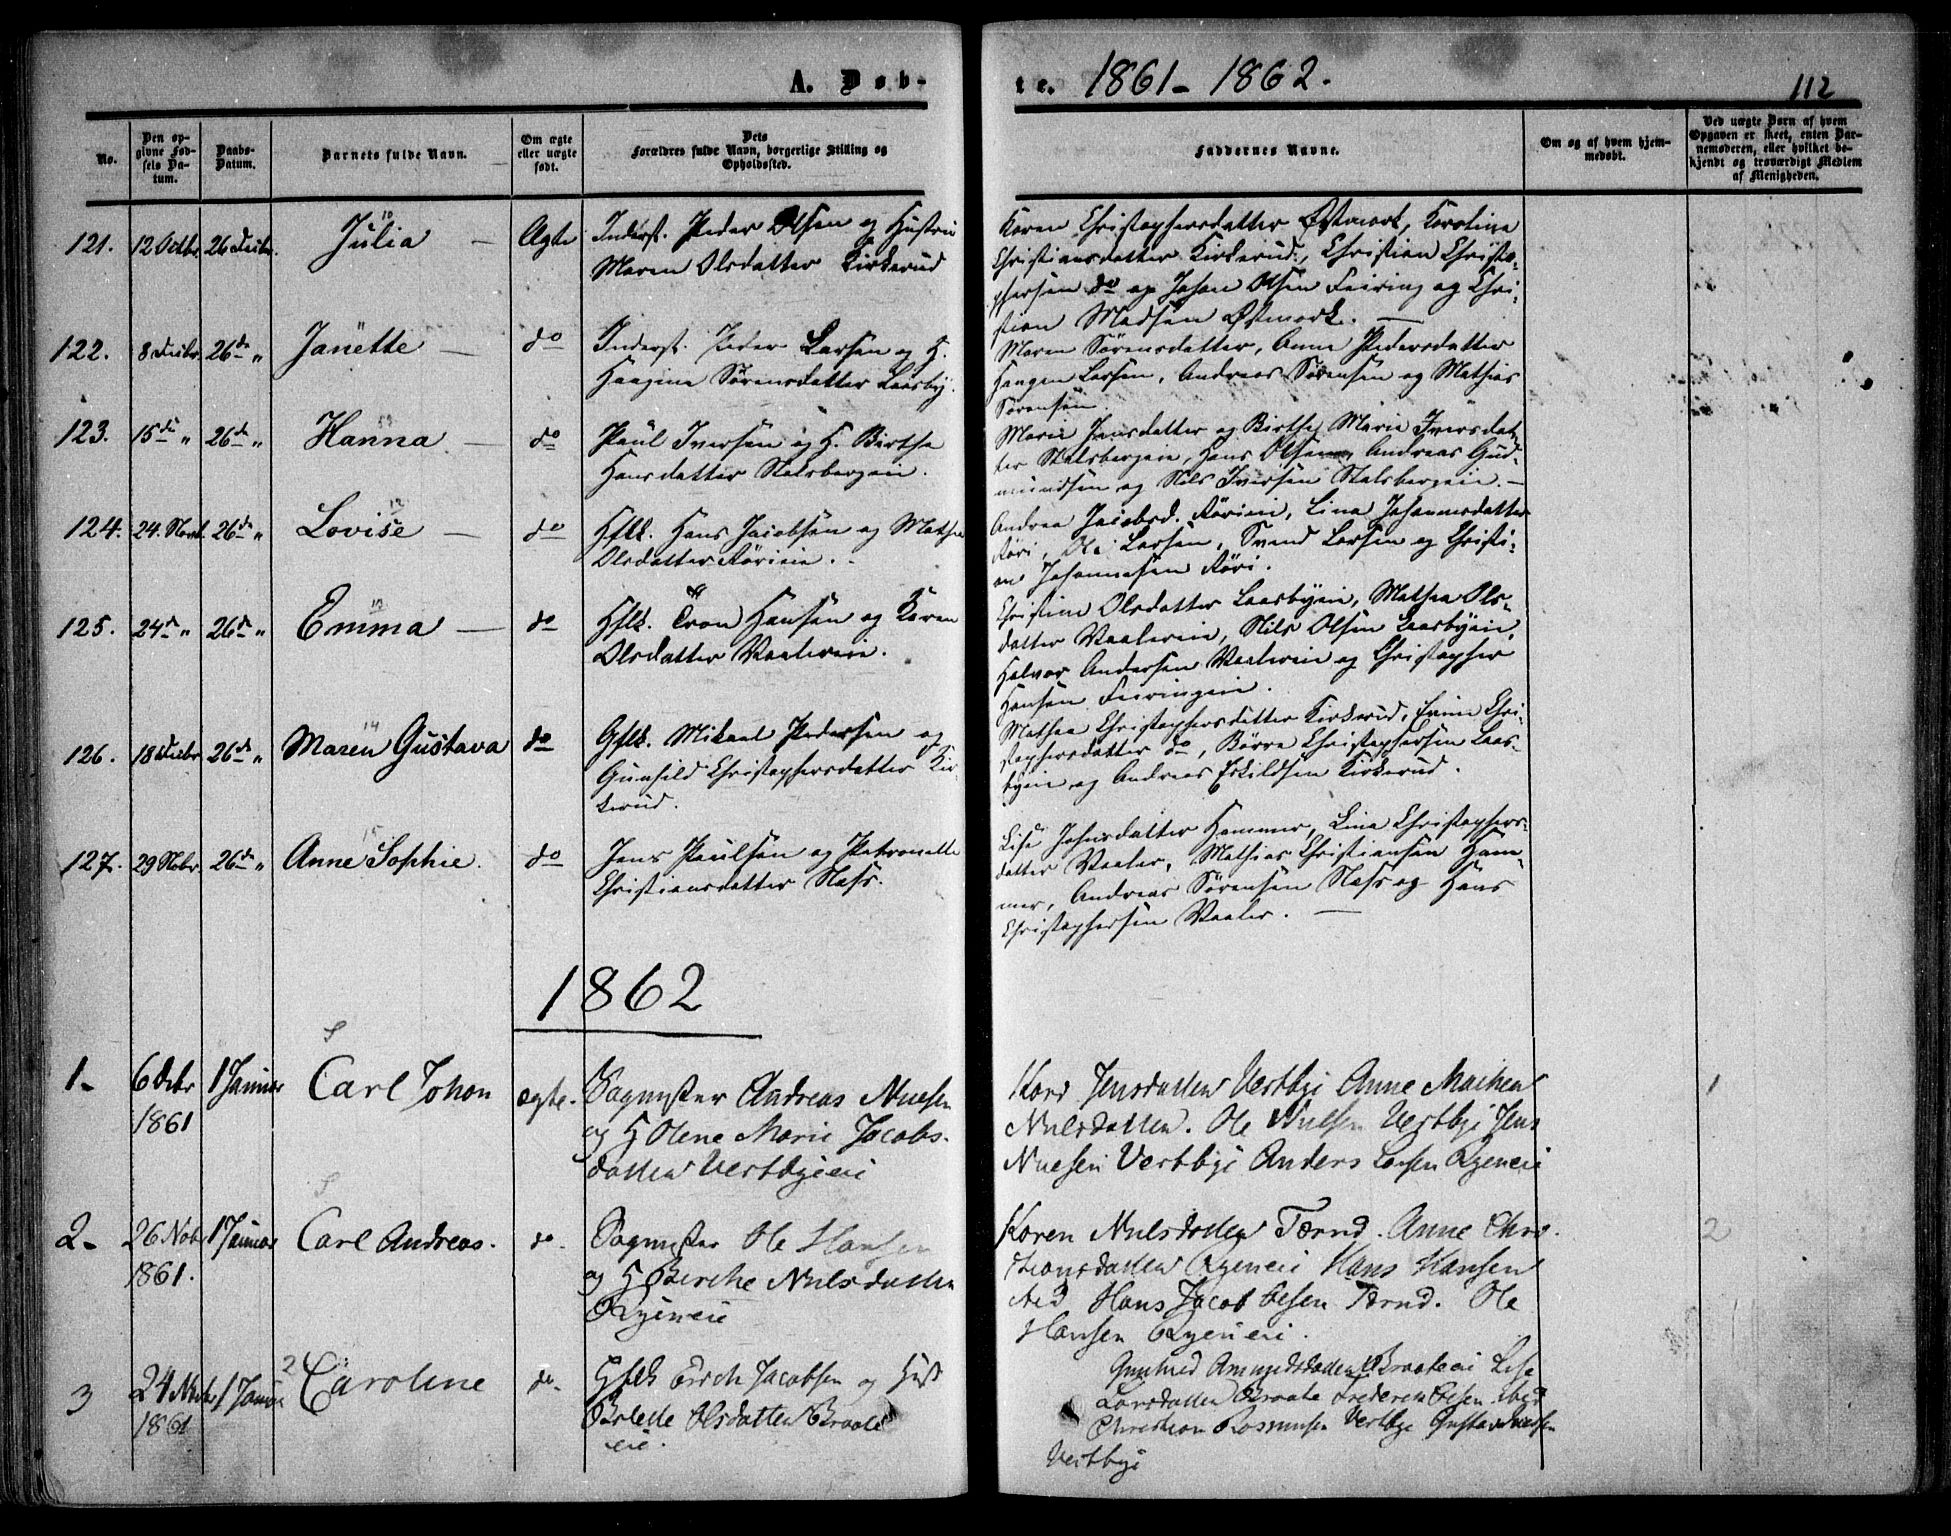 A. Døb-
te. 1861-1862.
112
No.
Den op-
givne Fød-
sels Da-
tum.
Daabs-
Datum.
Barnets fulde Navn.
Om ægte
eller uægte
født.
Dets
Forældres fulde Navn, borgerlige Stilling og
Opholdssted.
Faddernes Navne.
Om og af hvem hjem-
medøbt.
Ved uægte Børn af hvem
Opgaven er skeet, enten Bar-
nemoderen, eller hvilket be-
kjendt og troværdigt Medlem
af Menigheden.
121. 12 Octbr. 26 Decbr. Julia — Ægte
10
Inderst. Peder Olsen og Hustru
Maren Olsdatter Kirkerud
Karen Christophersdatter Østmork, Karoline
Christiansdatter Kirkerud, Christian Christo-
phersen do og Johan Olsen Feiring og Chri-
stian Madsen Østmork. —
122. 8 Decbr. 26de „ Janette — do
Inderst. Peder Larsen og H.
Haagine Sørensdatter Laasby.
Maren Sørensdatter, Anne Pedersdatter
Haagen Larsen, Andreas Sørensen og Mathias
Sørensen
123. 15de „ 26de „ Hanna — do
Paul Iversen og H. Birthe
Hansdatter Stalsbergeie.
Marie Jensdatter og Birthe Marie Iversdat-
ter Stalsbergeie, Hans Olsen, Andreas Gud-
mundsen og Nils Iversen Stalsbergeie. —
124. 24. Novb. 26de „ Lovise — do
12
Hflk. Hans Jacobsen og Mathea
Olsdatter Rørieie.
Andrea Jacobsd. Rørieie, Lina Johannesdatter
Røri, Ole Larsen, Svend Larsen og Christi-
an Johannesen Røri.
125. 24de „ 26de „ Emma — do
Hflk. Tron Hansen og Karen
Olsdatter Vaalereie.
Christine Olsdatter Laasbyeie, Mathea Ols-
datter Vaalereie, Nils Olsen Laasbyeie,
Halvor Andersen Vaalereie og Christopher
Hansen Feiringeie.
126. 18 Decbr. 26de „ Maren Gustava do
14
Gflk. Mikael Pedersen og
Gunhild Christophersdatter Kir-
kerud.
Mathea Christophersdatter Kirkerud, Chri-
stophersdatter do, Børre Christophersen Laas-
byeie og Andreas Eskildsen Kirkerud.
127. 29 Nbr. 26de „ Anne Sophie. do
15
Jens Paulsen og Petronelle
Christiansdatter Næss.
Lise Johnsdatter Hammer, Lina Christophers-
datter Vaaler, Mathias Christiansen Ham-
mer, Andreas Sørensen Næss og Hans
Christophersen Vaaler. —
1862
1- 6 Dcbr 1 Januar Carl Johan ægte.
1861
Sagmester Andreas Nielsen
og H Olene Marie Jacobs-
datter Vestbyeie
Jensdatter Vestby Anne Maihen
Nilsdatter. Ole Nielsen Vestby Jens
Nielsen Vestbye Anders Larsen Ryeneie
1
2- 26 Nob 1 Januar Carl Andreas. do.
1861.
Sagmester Ole Hansen
og H Berthe Nilsdatter
Ryeneie
Karen Nilsdatter Tærud. Anne Chri-
stiansdatter Ryeneie Hans Hansen
ibid Hans Jacob Olsen Tærud. Ole
Hansen Ryeneie.
2
3 24 Novbr 1 Januar Caroline do.
2
1861
Gflk Erich Jacobsen og Hust
Olsdatter Braate
eie.
Gunhild Amundsdatter Braateeie Lise
Larsdatter Braate Frederik Olsen ibid
Christian Rasmusen Vestbye Gustav
Vestbye